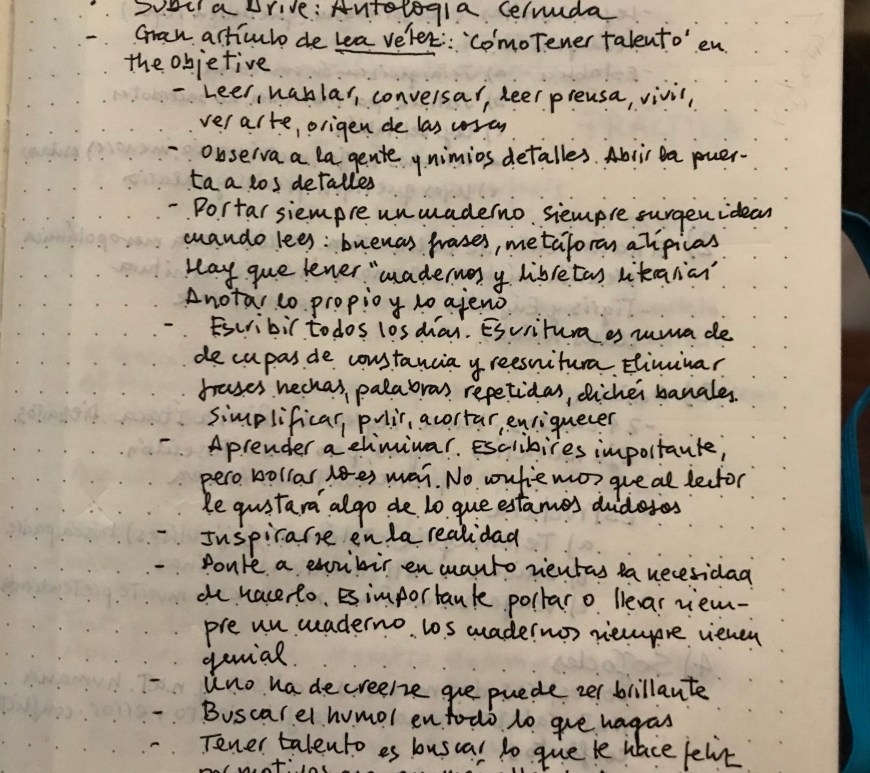 · Subir a Drive: Antología Cernuda
- Gran artículo de Lea Vélez: 'Cómo tener talento' en
the Objetive
- Leer, hablar, conversar, leer prensa, vivir,
ver arte, origen de las cosas
- Observa a la gente y nimios detalles. Abrir la puer-
ta a los detalles
- Portar siempre un cuaderno. Siempre surgen ideas
cuando lees: buenas frases, metáforas atípicas
Hay que tener "cuadernos y libretas literarias"
Anotar lo propio y lo ajeno
- Escribir todos los días. Escritura es suma de
de capas de constancia y reescritura. Eliminar
frases hechas, palabras repetidas, clichés banales.
Simplificar, pulir, acortar, enriquecer
- Aprender a eliminar. Escribir es importante,
pero borrar lo es más. No confiemos que al lector
le gustará algo de lo que estamos dudosos
- Inspirarse en la realidad
- Ponte a escribir en cuanto sientas la necesidad
de hacerlo. Es importante portar o llevar siem-
pre un cuaderno. Los cuadernos siempre vienen
genial.
- Uno ha de creerse que puede ser brillante
- Buscar el humor en todo lo que hagas
- Tener talento es buscar lo que te hace feliz
por motivos que